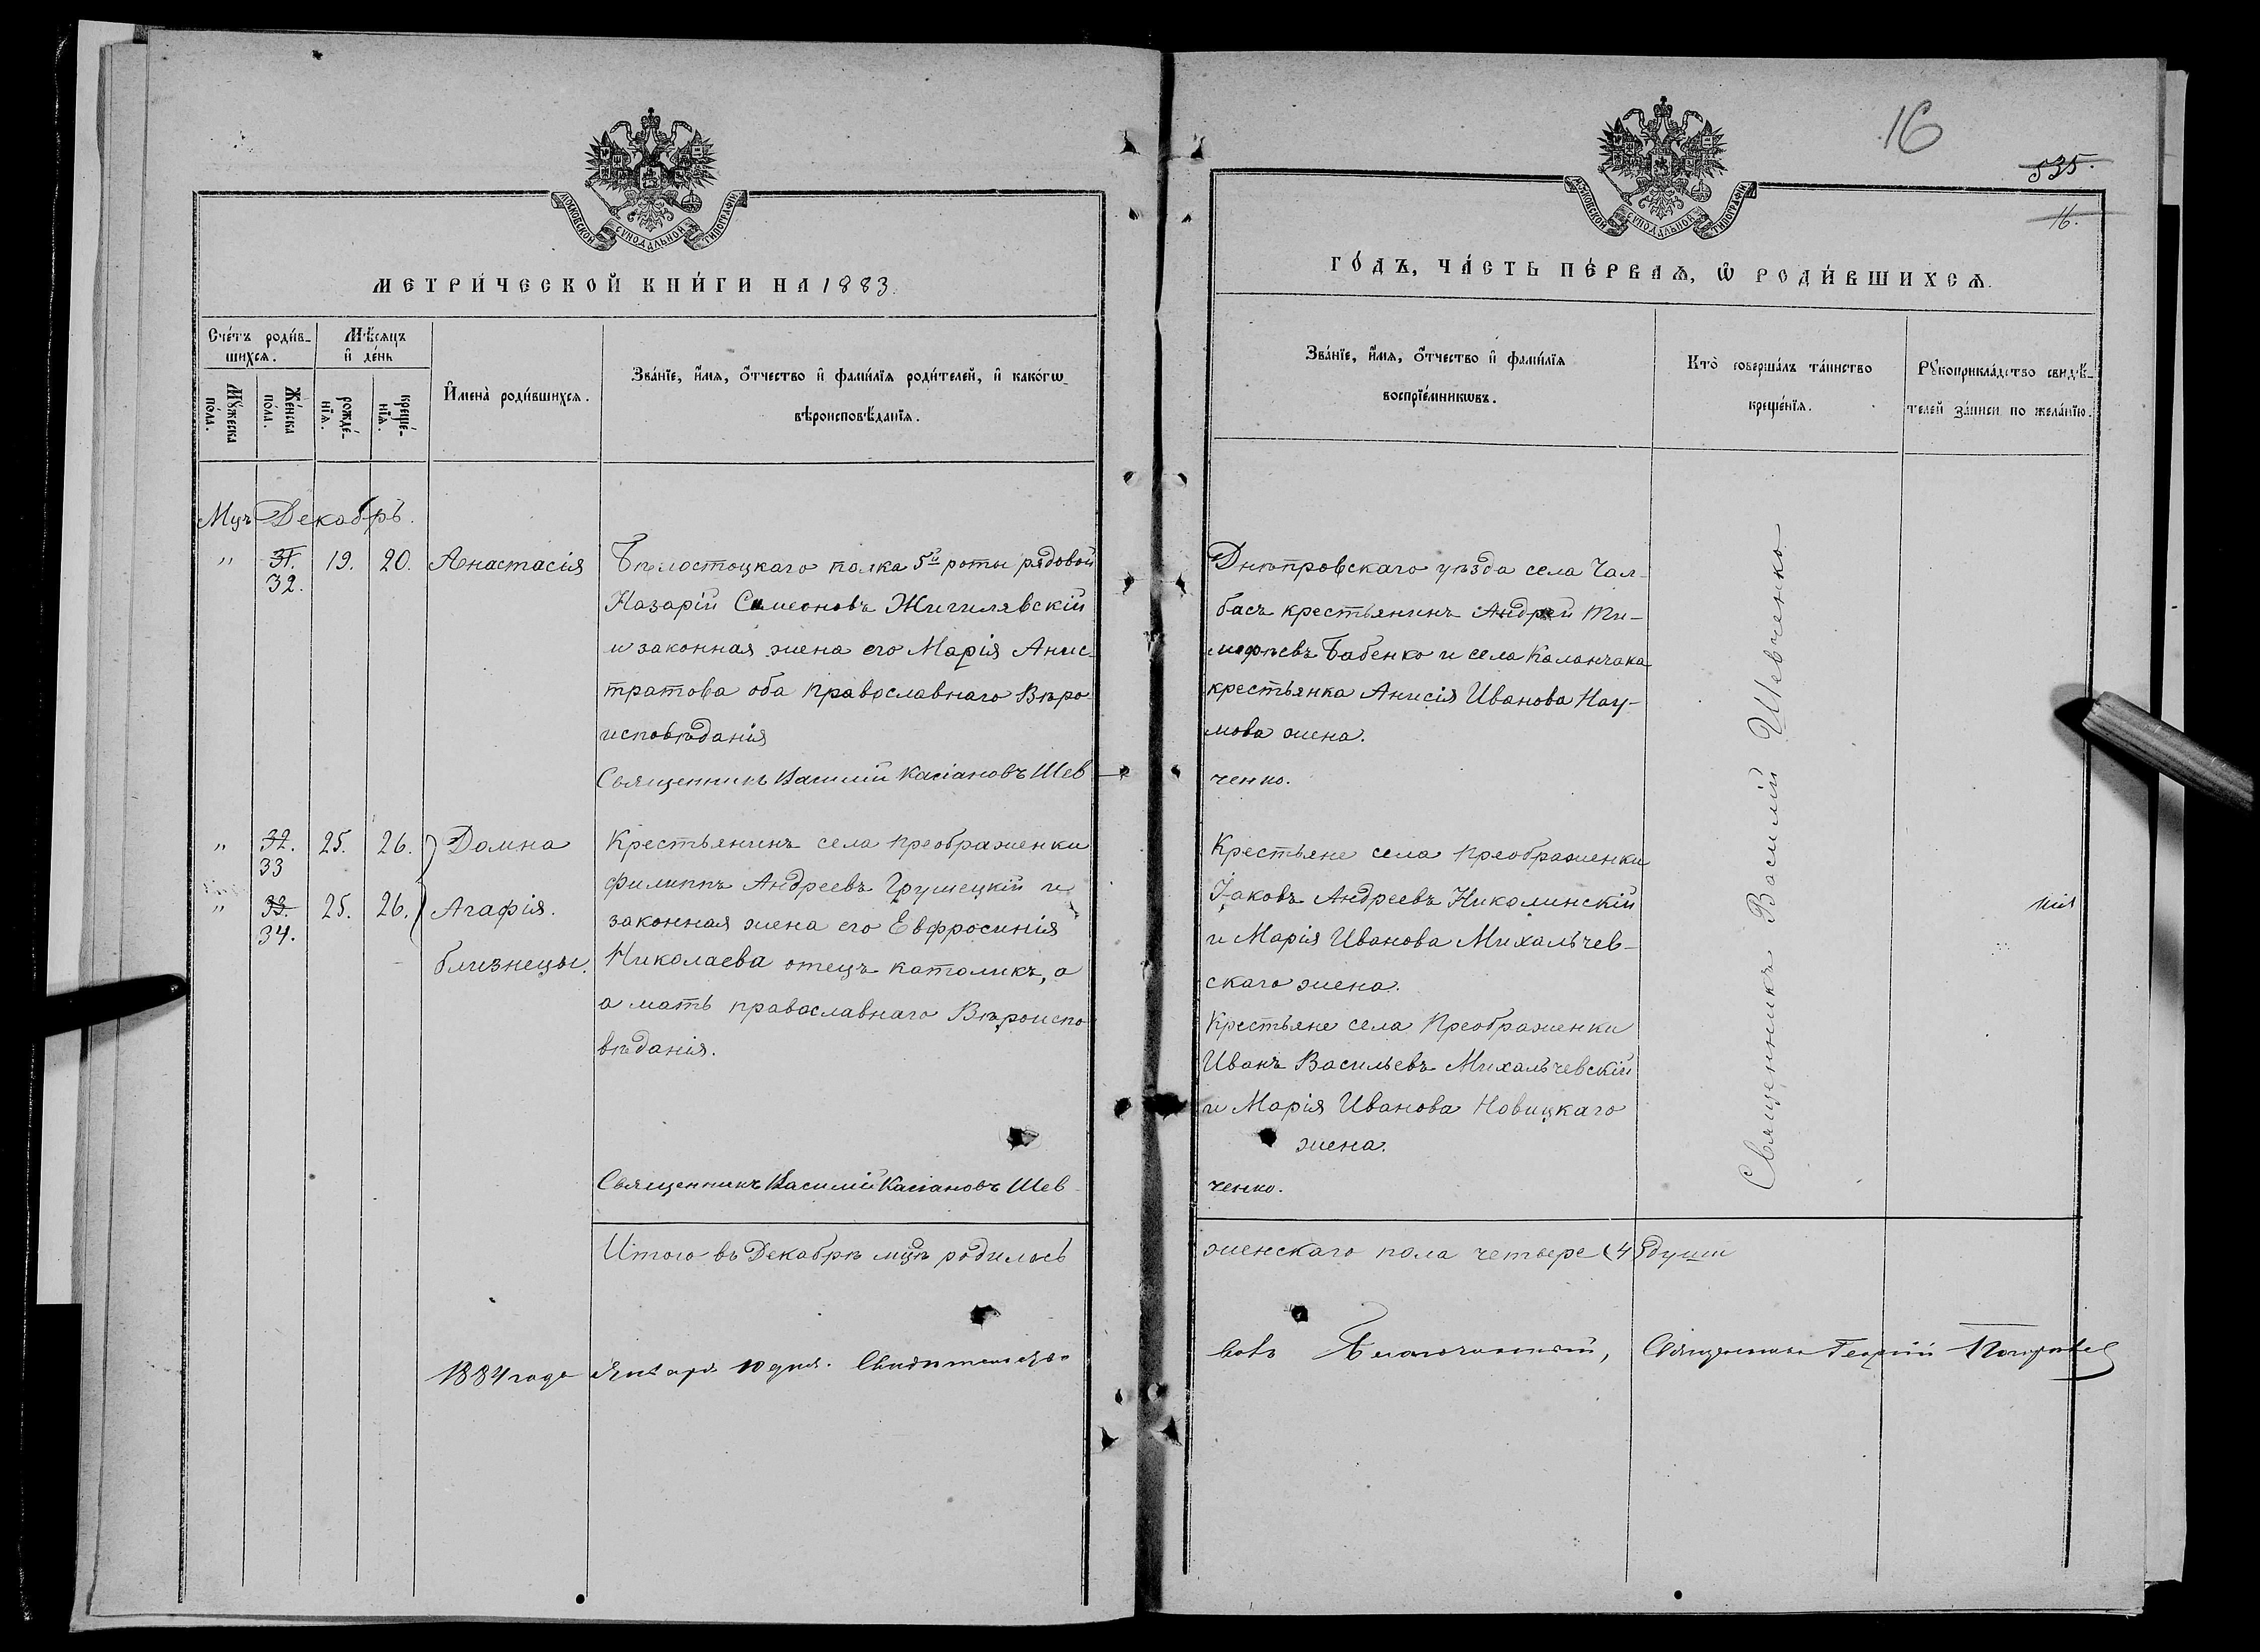 16
535.
16.
МОСКОВСКОЙ СѴНОДАЛЬНОЙ ТИПОГРАФІИ
МЕТРИ́ЧЕСКОЙ КНИ́ГИ НА 1883.
Сче́тъ роди́в-
шихсѧ.
Мѣ́сѧцъ
и҆ де́нь
Мꙋ́жеска
по́ла.
Же́нска
по́ла.
рожде́-
нїѧ.
креще́-
нїѧ.
И҆мена̀ роди́вшихсѧ.
Зва́нїе, и҆́мѧ, ѻ҆́тчество и҆ фами́лїѧ роди́телей, и҆ како́гѡ
вѣроисповѣ́данїѧ.
Мцъ Декабрь.
" 31. 19. 20. Анастасія
32.
Бѣлостоцкаго полка 5й роты рядовой
Назарій Симеоновъ Жигилявскій
и законная жена его Марія Анис-
тратова оба православнаго Вѣро
исповѣданія
Священникъ Василій Касіановъ Шев
" 32. 25. 26. Домна
33
" 33. 25. 26. Агафія.
34.
близнецы.
Крестьянинъ села Преображенки
Филиппъ Андреевъ Грушецкій и
законная жена его Евфросинія
Николаева отецъ католикъ, а
а мать православнаго Вѣроиспо
вѣданія.
Священникъ Василій Касіановъ Шев
Итого въ Декабрѣ мцѣ родилось
1884 года Января 10 дня.
МОСКОВСКОЙ СѴНОДАЛЬНОЙ ТИПОГРАФІИ
ГО́ДЪ, ЧА́СТЬ ПЕ́РВАѦ, Ѽ РОДИ́ВШИХСѦ.
Зва́нїе, и҆́мѧ, ѻ҆́тчество и҆ фами́лїѧ
воспрїе́мникѡвъ.
Кто̀ соверша́лъ та́инство
креще́нїѧ.
Рꙋкоприкла́дство свидѣ́-
телей за́писи по жела́нїю.
Днѣпровскаго уѣзда села Чал-
басъ крестьянинъ Андрей Ти-
мофѣевъ Бабенко и села Каланчака
крестьянка Анисія Иванова Нау-
мова жена.
ченко.
Крестьяне села Преображенки
Іаковъ Андреевъ Николинскій
и Марія Иванова Михальчев-
скаго жена.
Крестьяне села Преображенки
Иванъ Васильевъ Михальчевскій
и Марія Иванова Новицкаго
жена.
ченко.
Священникъ Василій Шевченко
женскаго пола четыре (4) души
Священникъ Георгій